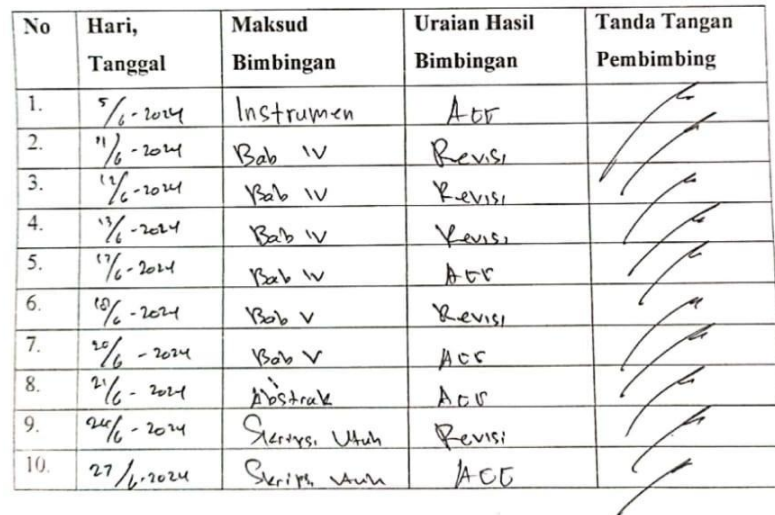 No Hari, Tanggal Maksud Bimbingan Uraian Hasil Bimbingan Tanda Tangan Pembimbing
1. 5/6-2024 Instrumen ACC
2. 11/6-2024 Bab IV Revisi
3. 12/6-2024 Bab IV Revisi
4. 13/6-2024 Bab IV Revisi
5. 17/6-2024 Bab IV ACC
6. 18/6-2024 Bab V Revisi
7. 20/6-2024 Bab V ACC
8. 21/6-2024 Abstrak ACC
9. 24/6-2024 Skripsi Utuh Revisi
10. 27/6-2024 Skripsi Utuh ACC